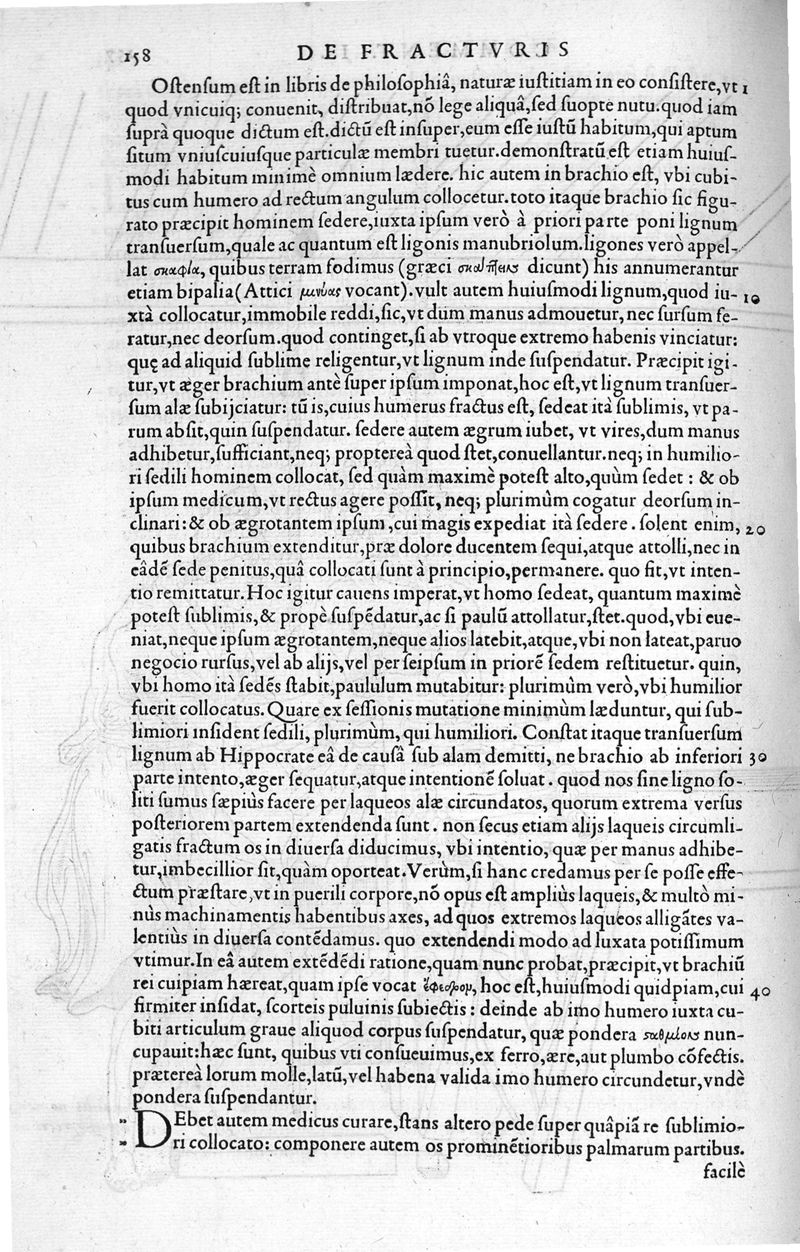 158 DE FRACTVRIS
Ostensum est in libris de philosophiâ, naturæ iustitiam in eo consistere, vt 1
quod vnicuiq; conuenit, distribuat, nõ lege aliquâ, sed suopte nutu. quod iam
suprà quoque dictum est. dictũ est insuper, eum esse iustũ habitum, qui aptum
situm vniuscuiusque particulæ membri tuetur. demonstratũ est etiam huius-
modi habitum minimè omnium lædere. hic autem in brachio est, vbi cubi-
tus cum humero ad rectum angulum collocetur. toto itaque brachio sic figu-
rato præcipit hominem sedere, iuxta ipsum verò à priori parte poni lignum
transuersum, quale ac quantum est ligonis manubriolum. ligones verò appel-
lat σκαφία, quibus terram fodimus (græci dicunt) his annumerantur
etiam bipalia (Attici μινύας vocant). vult autem huiusmodi lignum, quod iu- 10
xtà collocatur, immobile reddi, sic, vt dum manus admouetur, nec sursum fe-
ratur, nec deorsum. quod continget, si ab vtroque extremo habenis vinciatur:
quę ad aliquid sublime religentur, vt lignum inde suspendatur. Præcipit igi-
tur, vt æger brachium antè super ipsum imponat, hoc est, vt lignum transuer-
sum alæ subijciatur: tũ is, cuius humerus fractus est, sedeat ità sublimis, vt pa-
rum absit, quin suspendatur. sedere autem ægrum iubet, vt vires, dum manus
adhibetur, sufficiant, neq; proptereà quod stet, conuellantur. neq; in humilio-
ri sedili hominem collocat, sed quàm maximè potest alto, quùm sedet : & ob
ipsum medicum, vt rectus agere possit, neq; plurimùm cogatur deorsum in-
clinari: & ob ægrotantem ipsum, cui magis expediat ità sedere. solent enim, 20
quibus brachium extenditur, præ dolore ducentem sequi, atque attolli, nec in
eâdẽ sede penitus, quâ collocati sunt à principio, permanere. quo fit, vt inten-
tio remittatur. Hoc igitur cauens imperat, vt homo sedeat, quantum maximè
potest sublimis, & propè suspẽdatur, ac si paulũ attollatur, stet. quod, vbi eue-
niat, neque ipsum ægrotantem, neque alios latebit, atque, vbi non lateat, paruo
negocio rursus, vel ab alijs, vel per seipsum in priorẽ sedem restituetur. quin,
vbi homo ità sedẽs stabit, paululum mutabitur: plurimùm verò, vbi humilior
fuerit collocatus. Quare ex sessionis mutatione minimùm læduntur, qui sub-
limiori insident sedili, plurimùm, qui humiliori. Constat itaque transuersum
lignum ab Hippocrate eâ de causâ sub alam demitti, ne brachio ab inferiori 30
parte intento, æger sequatur, atque intentionẽ soluat. quod nos sine ligno so-
liti sumus sæpiùs facere per laqueos alæ circundatos, quorum extrema versus
posteriorem partem extendenda sunt. non secus etiam alijs laqueis circumli-
gatis fractum os in diuersa diducimus, vbi intentio, quæ per manus adhibe-
tur, imbecillior sit, quàm oporteat. Verùm, si hanc credamus per se posse effe-
ctum præstare, vt in puerili corpore, nõ opus est ampliùs laqueis, & multò mi-
nùs machinamentis habentibus axes, ad quos extremos laqueos alligãtes va-
lentiùs in diuersa contẽdamus. quo extendendi modo ad luxata potissimum
vtimur. In eâ autem extẽdẽdi ratione, quam nunc probat, præcipit, vt brachiũ
rei cuipiam hæreat, quam ipse vocat ἔφεδρον, hoc est, huiusmodi quidpiam, cui 40
firmiter insidat, scorteis puluinis subiectis : deinde ab imo humero iuxta cu-
biti articulum graue aliquod corpus suspendatur, quæ pondera nun-
cupauit: hæc sunt, quibus vti consueuimus, ex ferro, ære, aut plumbo cõfectis.
prætereà lorum molle, latũ, vel habena valida imo humero circundetur, vndè
pondera suspendantur.
" DEbet autem medicus curare, stans altero pede super quâpiã re sublimio-
" ri collocato: componere autem os prominẽtioribus palmarum partibus.
facilè